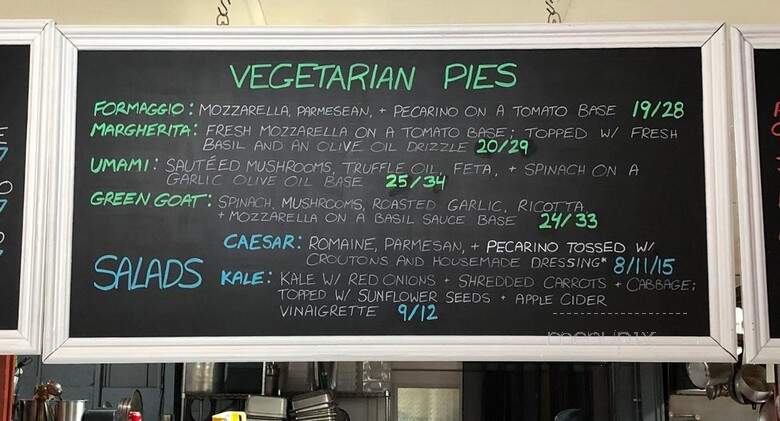 VEGETARIAN PIES
FORMAGGIO: MOZZARELLA, PARMESEAN, + PECARINO ON A TOMATO BASE 19/28
MARGHERITA: FRESH MOZZARELLA ON A TOMATO BASE; TOPPED W/ FRESH
BASIL AND AN OLIVE OIL DRIZZLE 20/29
UMAMI: SAUTÉED MUSHROOMS, TRUFFLE OIL, FETA, + SPINACH ON A
GARLIC OLIVE OIL BASE 25/34
GREEN GOAT: SPINACH, MUSHROOMS, ROASTED GARLIC, RICOTTA
+ MOZZARELLA ON A BASIL SAUCE BASE 24/33
SALADS
CAESAR: ROMAINE, PARMESAN, + PECARINO TOSSED W/
CROUTONS AND HOUSEMADE DRESSING* 8/11/15
KALE: KALE W/ RED ONIONS + SHREDDED CARROTS + CABBAGE;
TOPPED W/ SUNFLOWER SEEDS + APPLE CIDER
VINAIGRETTE 9/12